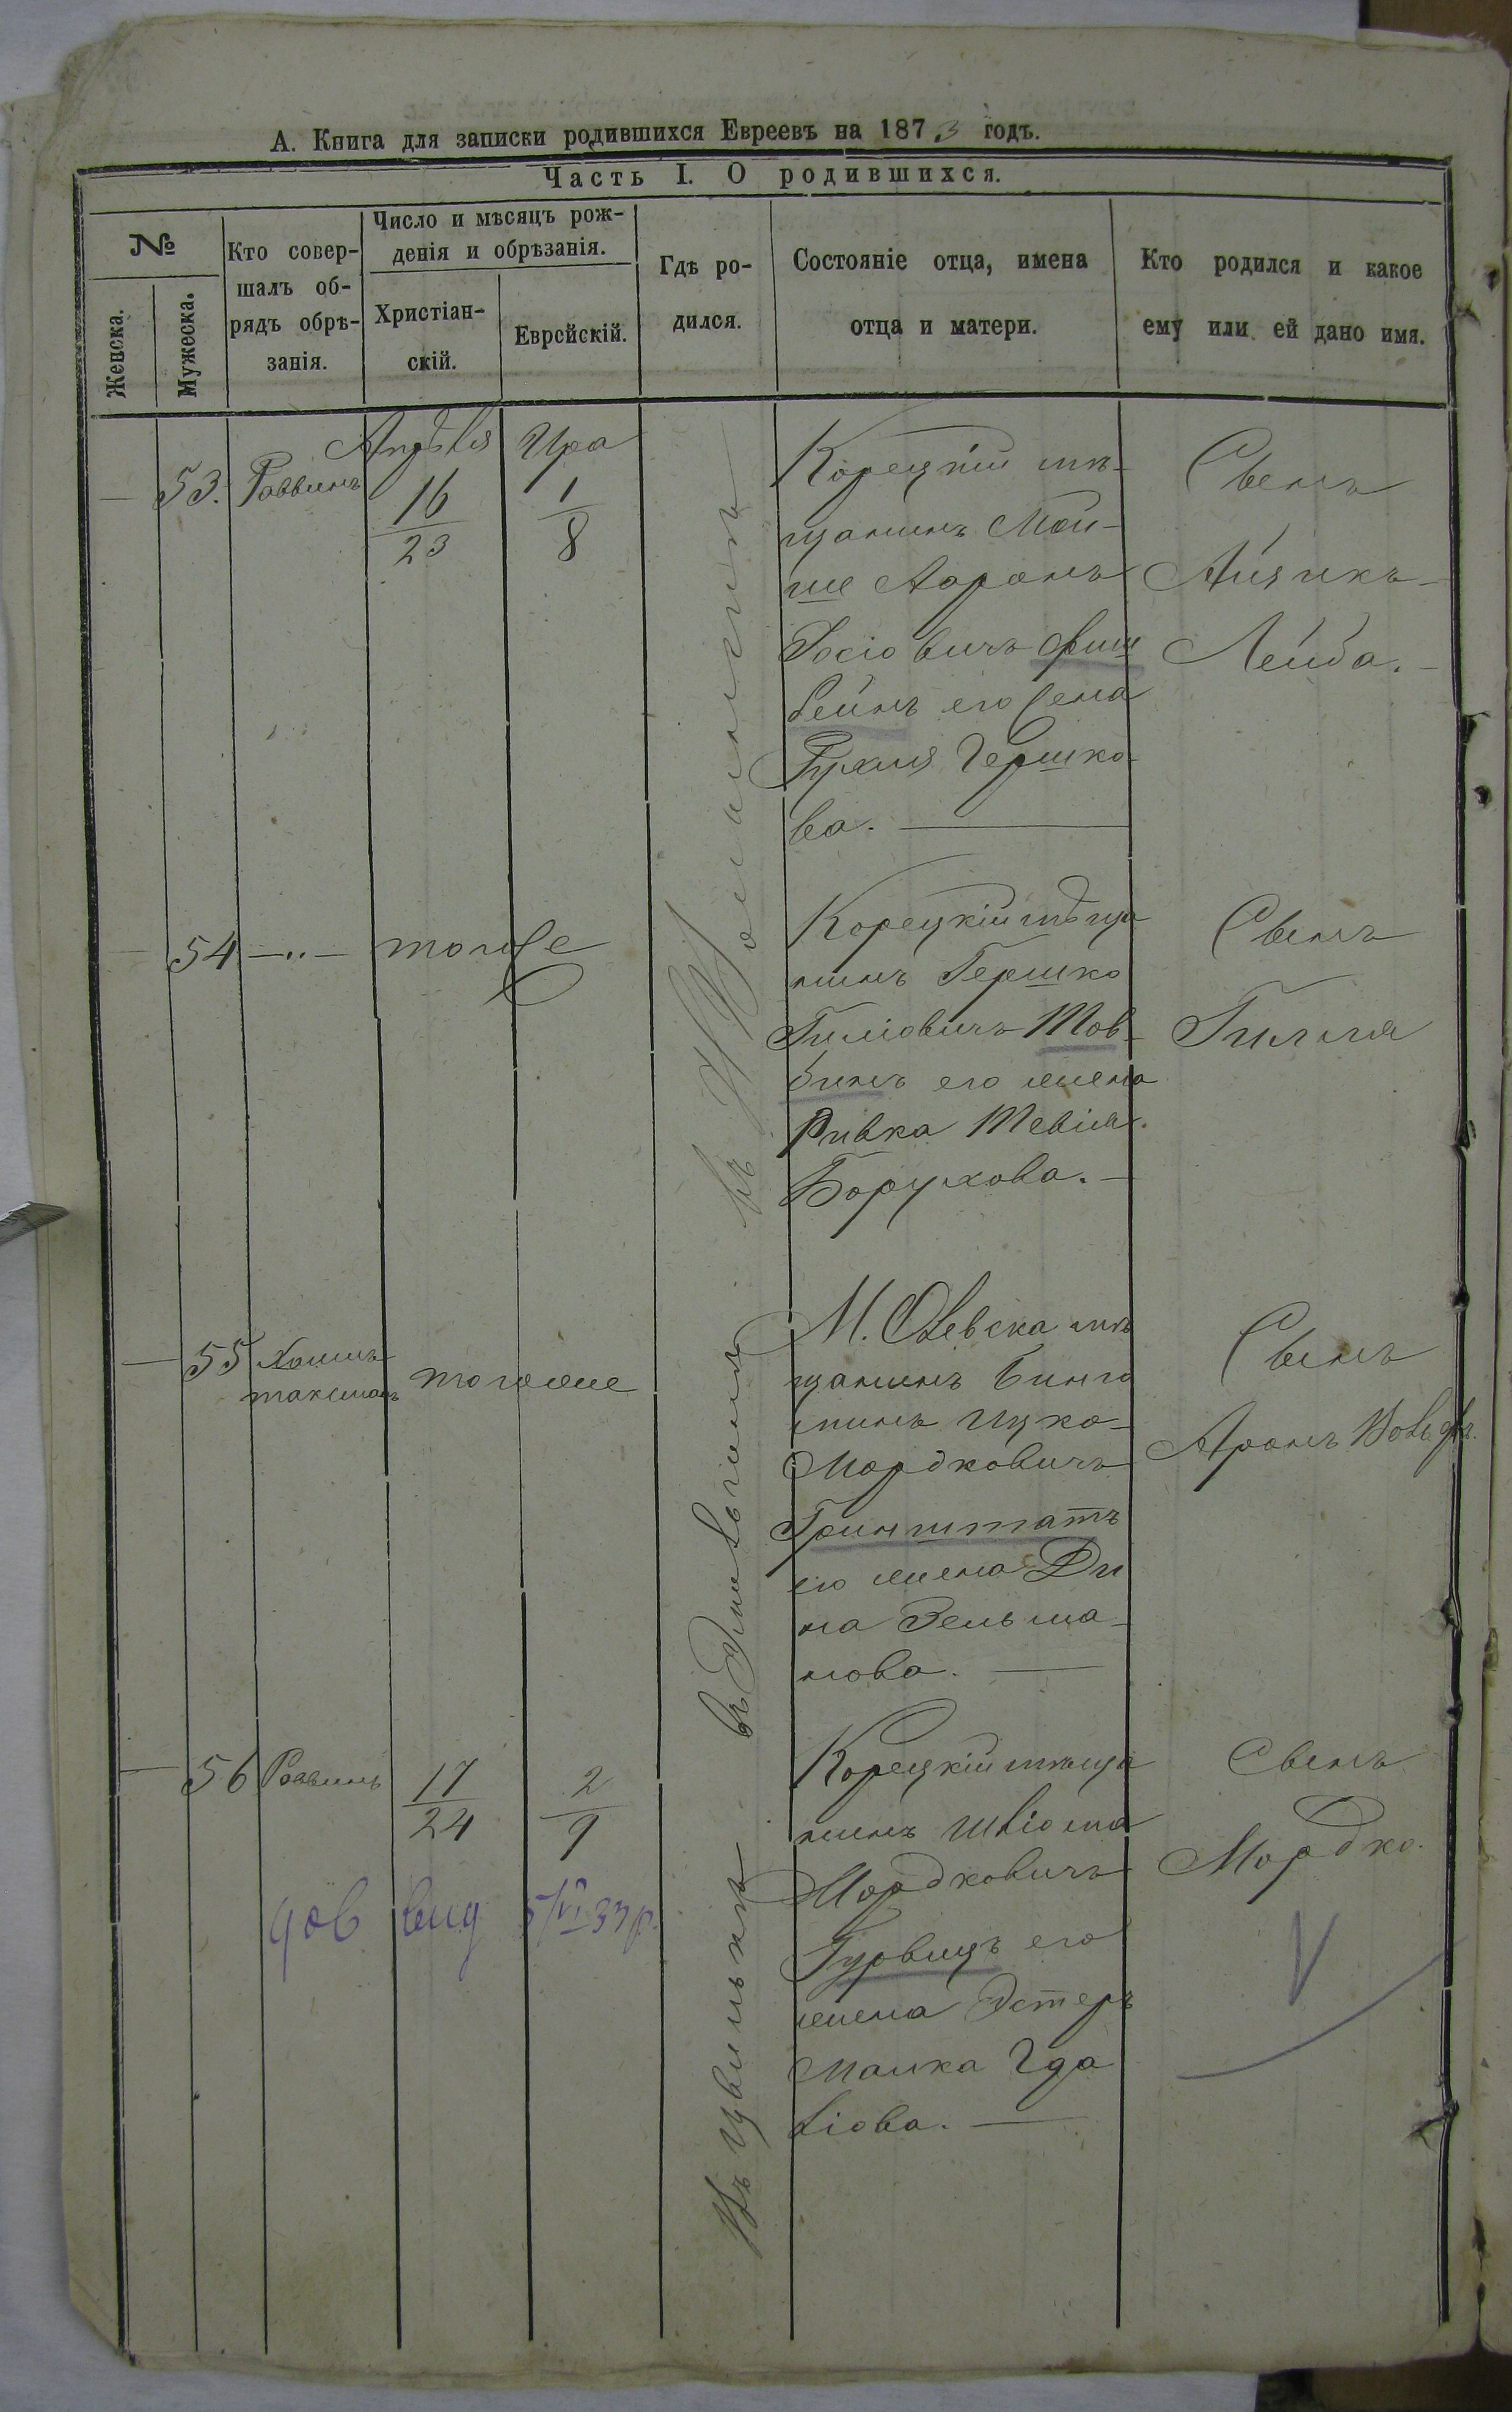 А. Книга для записки родившихся Евреевъ на 1873 годъ.
Часть I. О родившихся.
№
Женска.
Мужеска.
Кто совер-
шалъ об-
рядъ обрѣ-
занія.
Число и мѣсяцъ рож-
денія и обрѣзанія.
Христіан-
скій.
Еврейскій.
Гдѣ ро-
дился.
Состояніе отца, имена
отца и матери.
Кто родился и какое
ему или ей дано имя.
53. Раввинъ
Апрѣля
16
23
Ира
1
8
Корецкій мѣ-
щанинъ Мой-
ше Ааронъ
Іосіовичъ Фиш
бейнъ его жена
Рухля Гершко-
ва.
Сынъ
Айзикъ-
Лейба.
54 —"— тоже
Корецкій мѣща
нинъ Гершко
Гиліовичъ Тов-
бинъ его жена
Ривка Тевіи
Борухова.
Сынъ
Гилля
55 Хаимъ
тоже
М. Олевска мѣ
щанинъ
Ицко-
Мордковичъ
Гринштатъ
его жена Ди
на Зельма-
нова.
Сынъ
Аронъ Вольфъ.
56 Раввинъ
17
24
2
9
Корецкій мѣща
нинъ Шліома
Мордковичъ
Гурвицъ его
жена Эстеръ
Малка Гда
ліова.
Сынъ
Мордко.
дов вид 5/VI 33 р.
V